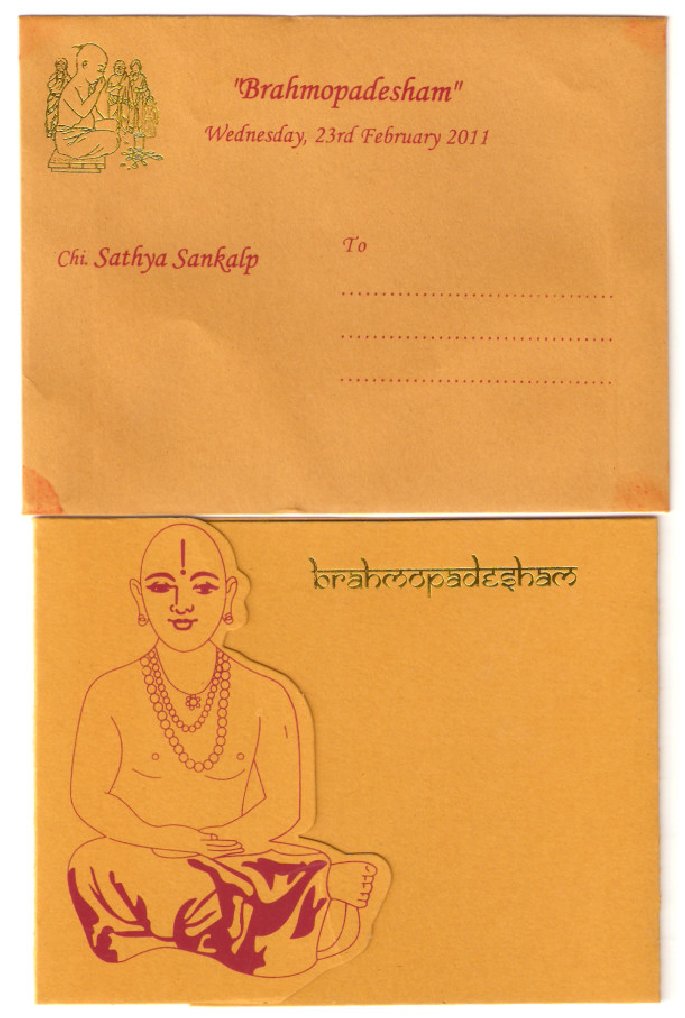 "Brahmopadesham"
Wednesday, 23rd February 2011
Chi. Sathya Sankalp
To
brahmopadesham